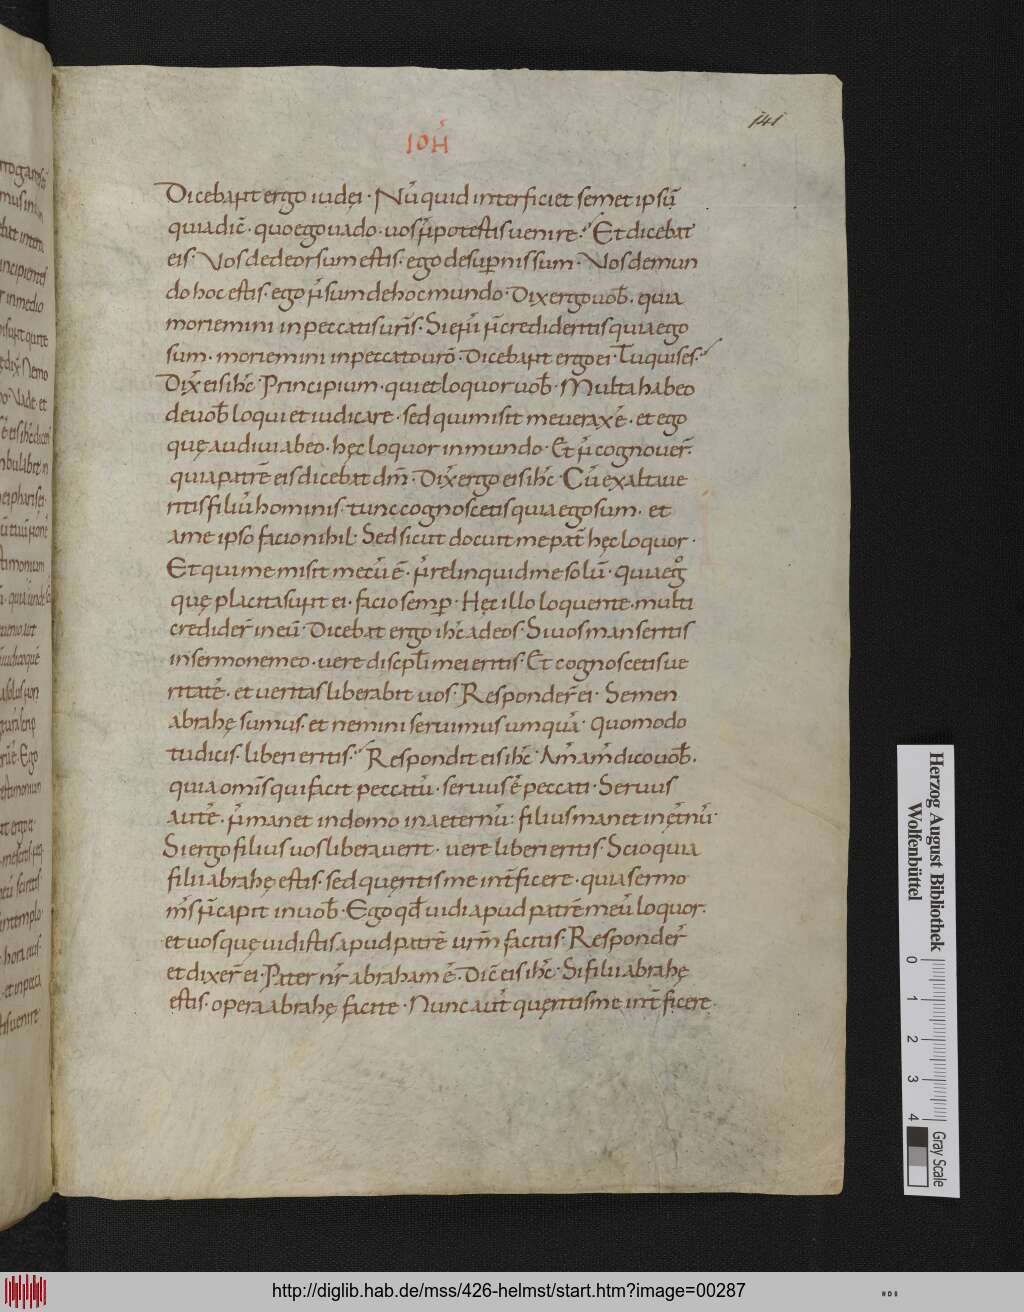 141
IOH̄
Dicebant ergo iudęi · Nū quid interficiet semet ipsū
quia dic̄ · quo ego uado · uos n̄ potestis uenire · Et dicebat
eis · Vos de deorsum estis · ego de sup̄nis sum · Vos de mun
do hoc estis · ego n̄ sum de hoc mundo · Dixi ergo uob̄ · quia
moriemini in peccatis ur̄is · Si enī n̄ credideritis quia ego
sum · moriemini in peccato urō · Dicebant ergo ei · Tu quis es ·
Dix̄ eis ih̄c · Principium · qui et loquor uob̄ · Multa habeo
de uob̄ loqui et iudicare · sed qui misit me uerax ē · et ego
quę audiui ab eo · hęc loquor in mundo · Et n̄ cognouer̄ ·
quia patrē eis dicebat dm̄ · Dix̄ ergo eis ih̄c · Cū exaltaue
ritis filiū hominis · tunc cognoscetis quia ego sum · et
a me ipso facio nihil · Sed sicut docuit me pat̄ hęc loquor ·
Et qui me misit mecū ē · n̄ relinquid me solū · quia eg̊
quę placita sunt ei · facio semp̄ · Hęc illo loquente · multi
credider̄ in eū · Dicebat ergo ih̄c ad eos · Si uos manseritis
in sermone meo · uere discpl̄i mei eritis · Et cognoscetis ue
ritatē · et ueritas liberabit uos · Responder̄ ei · Semen
abrahę sumus · et nemini seruimus umquā · quomodo
tu dicis · liberi eritis · Respondit eis ih̄c · Am̄ am̄ dico uob̄ ·
quia omīs qui facit peccatū · seruus ē peccati · Seruus
autē · n̄ manet in domo in aeternū · filius manet in ęt̄nū ·
Si ergo filius uos liberauerit · uere liberi eritis · Scio quia
filii abrahę estis · sed quęritis me int̄ficere · quia sermo
m̄s n̄ capit in uob̄ · Ego qd̄ uidi apud patrē meū loquor ·
et uos quę uidistis apud patrē urm̄ facitis · Responder̄
et dixer̄ ei · Pater nr̄ abraham ē · Dic̄ eis ih̄c · Si filii abrahę
estis · opera abrahę facite · Nunc aut̄ quęritis me int̄ficere ·
Herzog August Bibliothek
Wolfenbüttel
0 1 2 3 4
Gray Scale
http://diglib.hab.de/mss/426-helmst/start.htm?image=00287